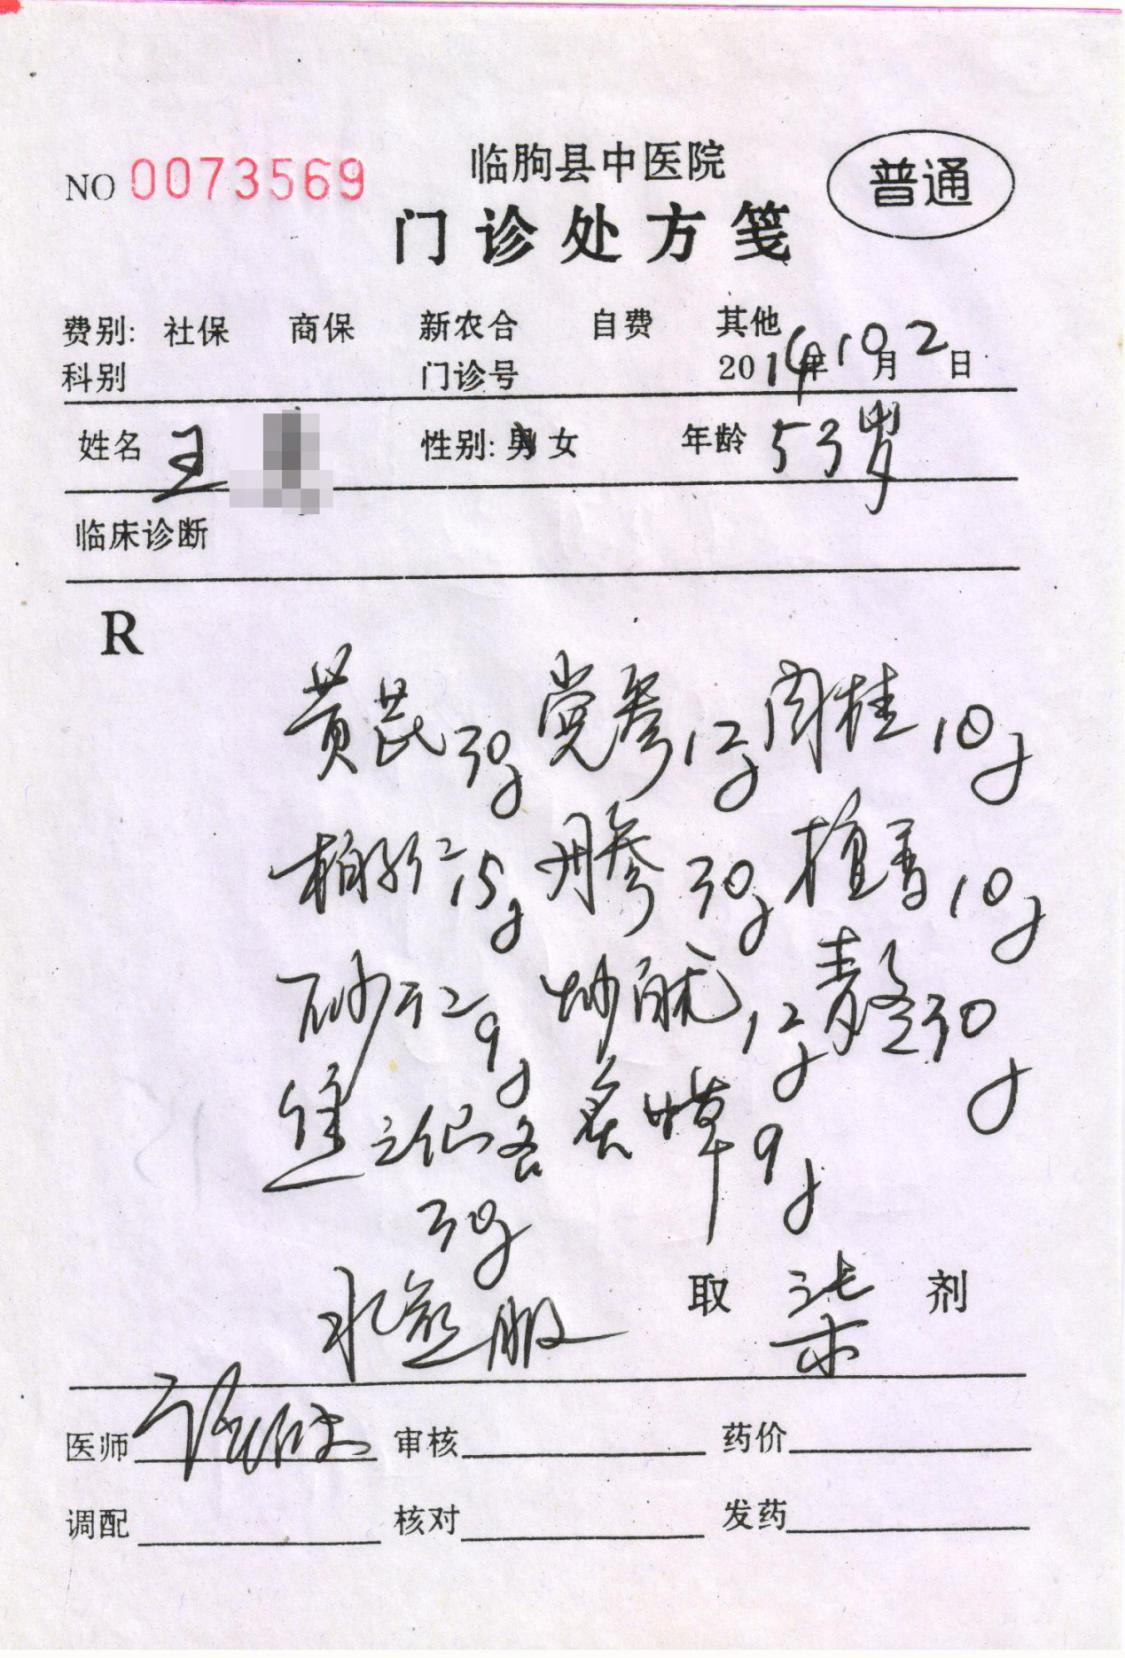 NO 0073569
临朐县中医院
普通
门诊处方笺
费别: 社保 商保 新农合 自费 其他
科别 门诊号 2014年10月2日
姓名 王 性别: 男 女 年龄 53岁
临床诊断
R
黄芪30g 党参12g 肉桂10g
柏子仁15g 丹参30g 檀香10g
砂仁9g 炒白术12g 30g
炙甘草9g
30g
水煎服 取 柒 剂
医师 审核 药价
调配 核对 发药